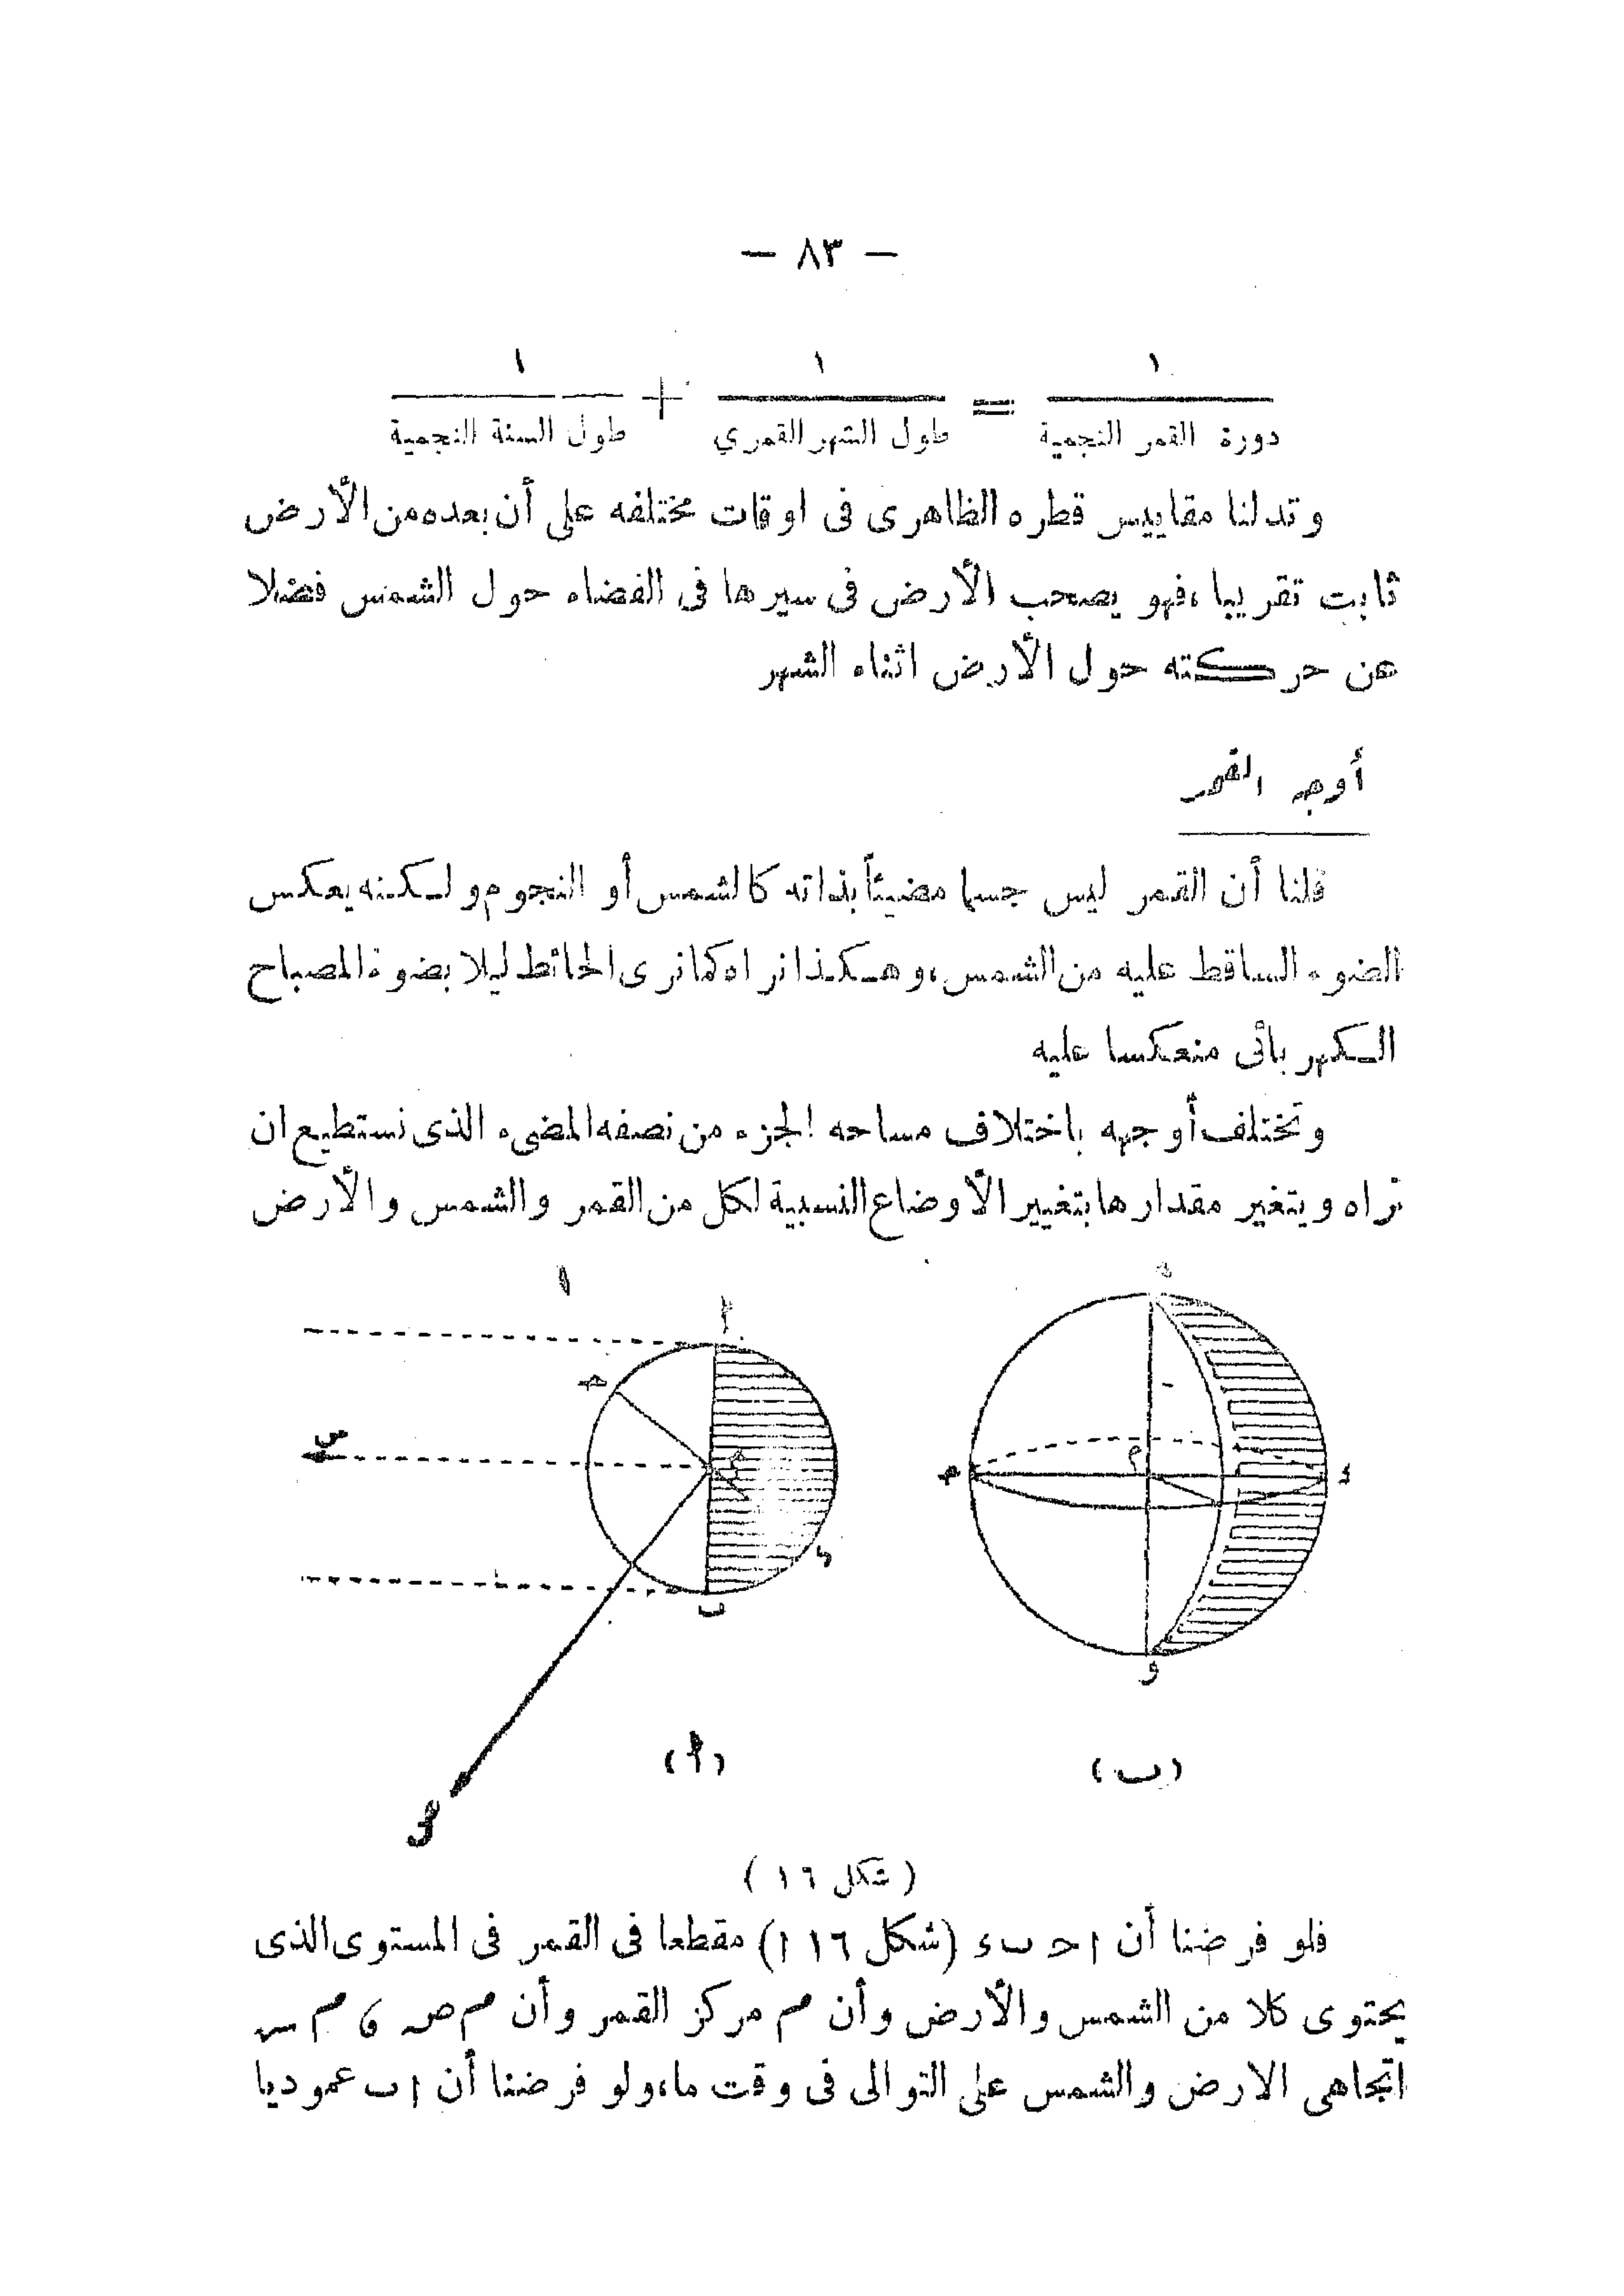 — ٨٣ —
١ / دورة القمر النجمية = ١ / طول الشهر القمري + ١ / طول السنة النجمية
وتدلنا مقاييس قطره الظاهرى فى اوقات مختلفه على أن بعده من الأرض
ثابت تقريبا ، فهو يصحب الأرض فى سيرها فى الفضاء حول الشمس فضلا
عن حركته حول الأرض اثناء الشهر
أوجه القمر
قلنا أن القمر ليس جسما مضيئاً بذاته كالشمس أو النجوم ولكنه يعكس
الضوء الساقط عليه من الشمس ، وهكذا نراه كما نرى الحائط ليلا بضوء المصباح
الكهربائى منعكسا عليه
وتختلف أوجهه باختلاف مساحه الجزء من نصفه المضىء الذى نستطيع ان
نراه ويتغير مقدارها بتغيير الأوضاع النسبية لكل من القمر والشمس والأرض
ا
حـ
س
م
ب
ء
حـ
م
ء
و
(ا)
(ب)
(شكل ١٦)
فلو فرضنا أن ا حـ ب ء (شكل ١٦ ا) مقطعا فى القمر فى المستوى الذى
يحتوى كلا من الشمس والأرض وأن م مركز القمر وأن م ص ، م س
اتجاهى الارض والشمس على التوالى فى وقت ما ، ولو فرضنا أن ا ب عموديا